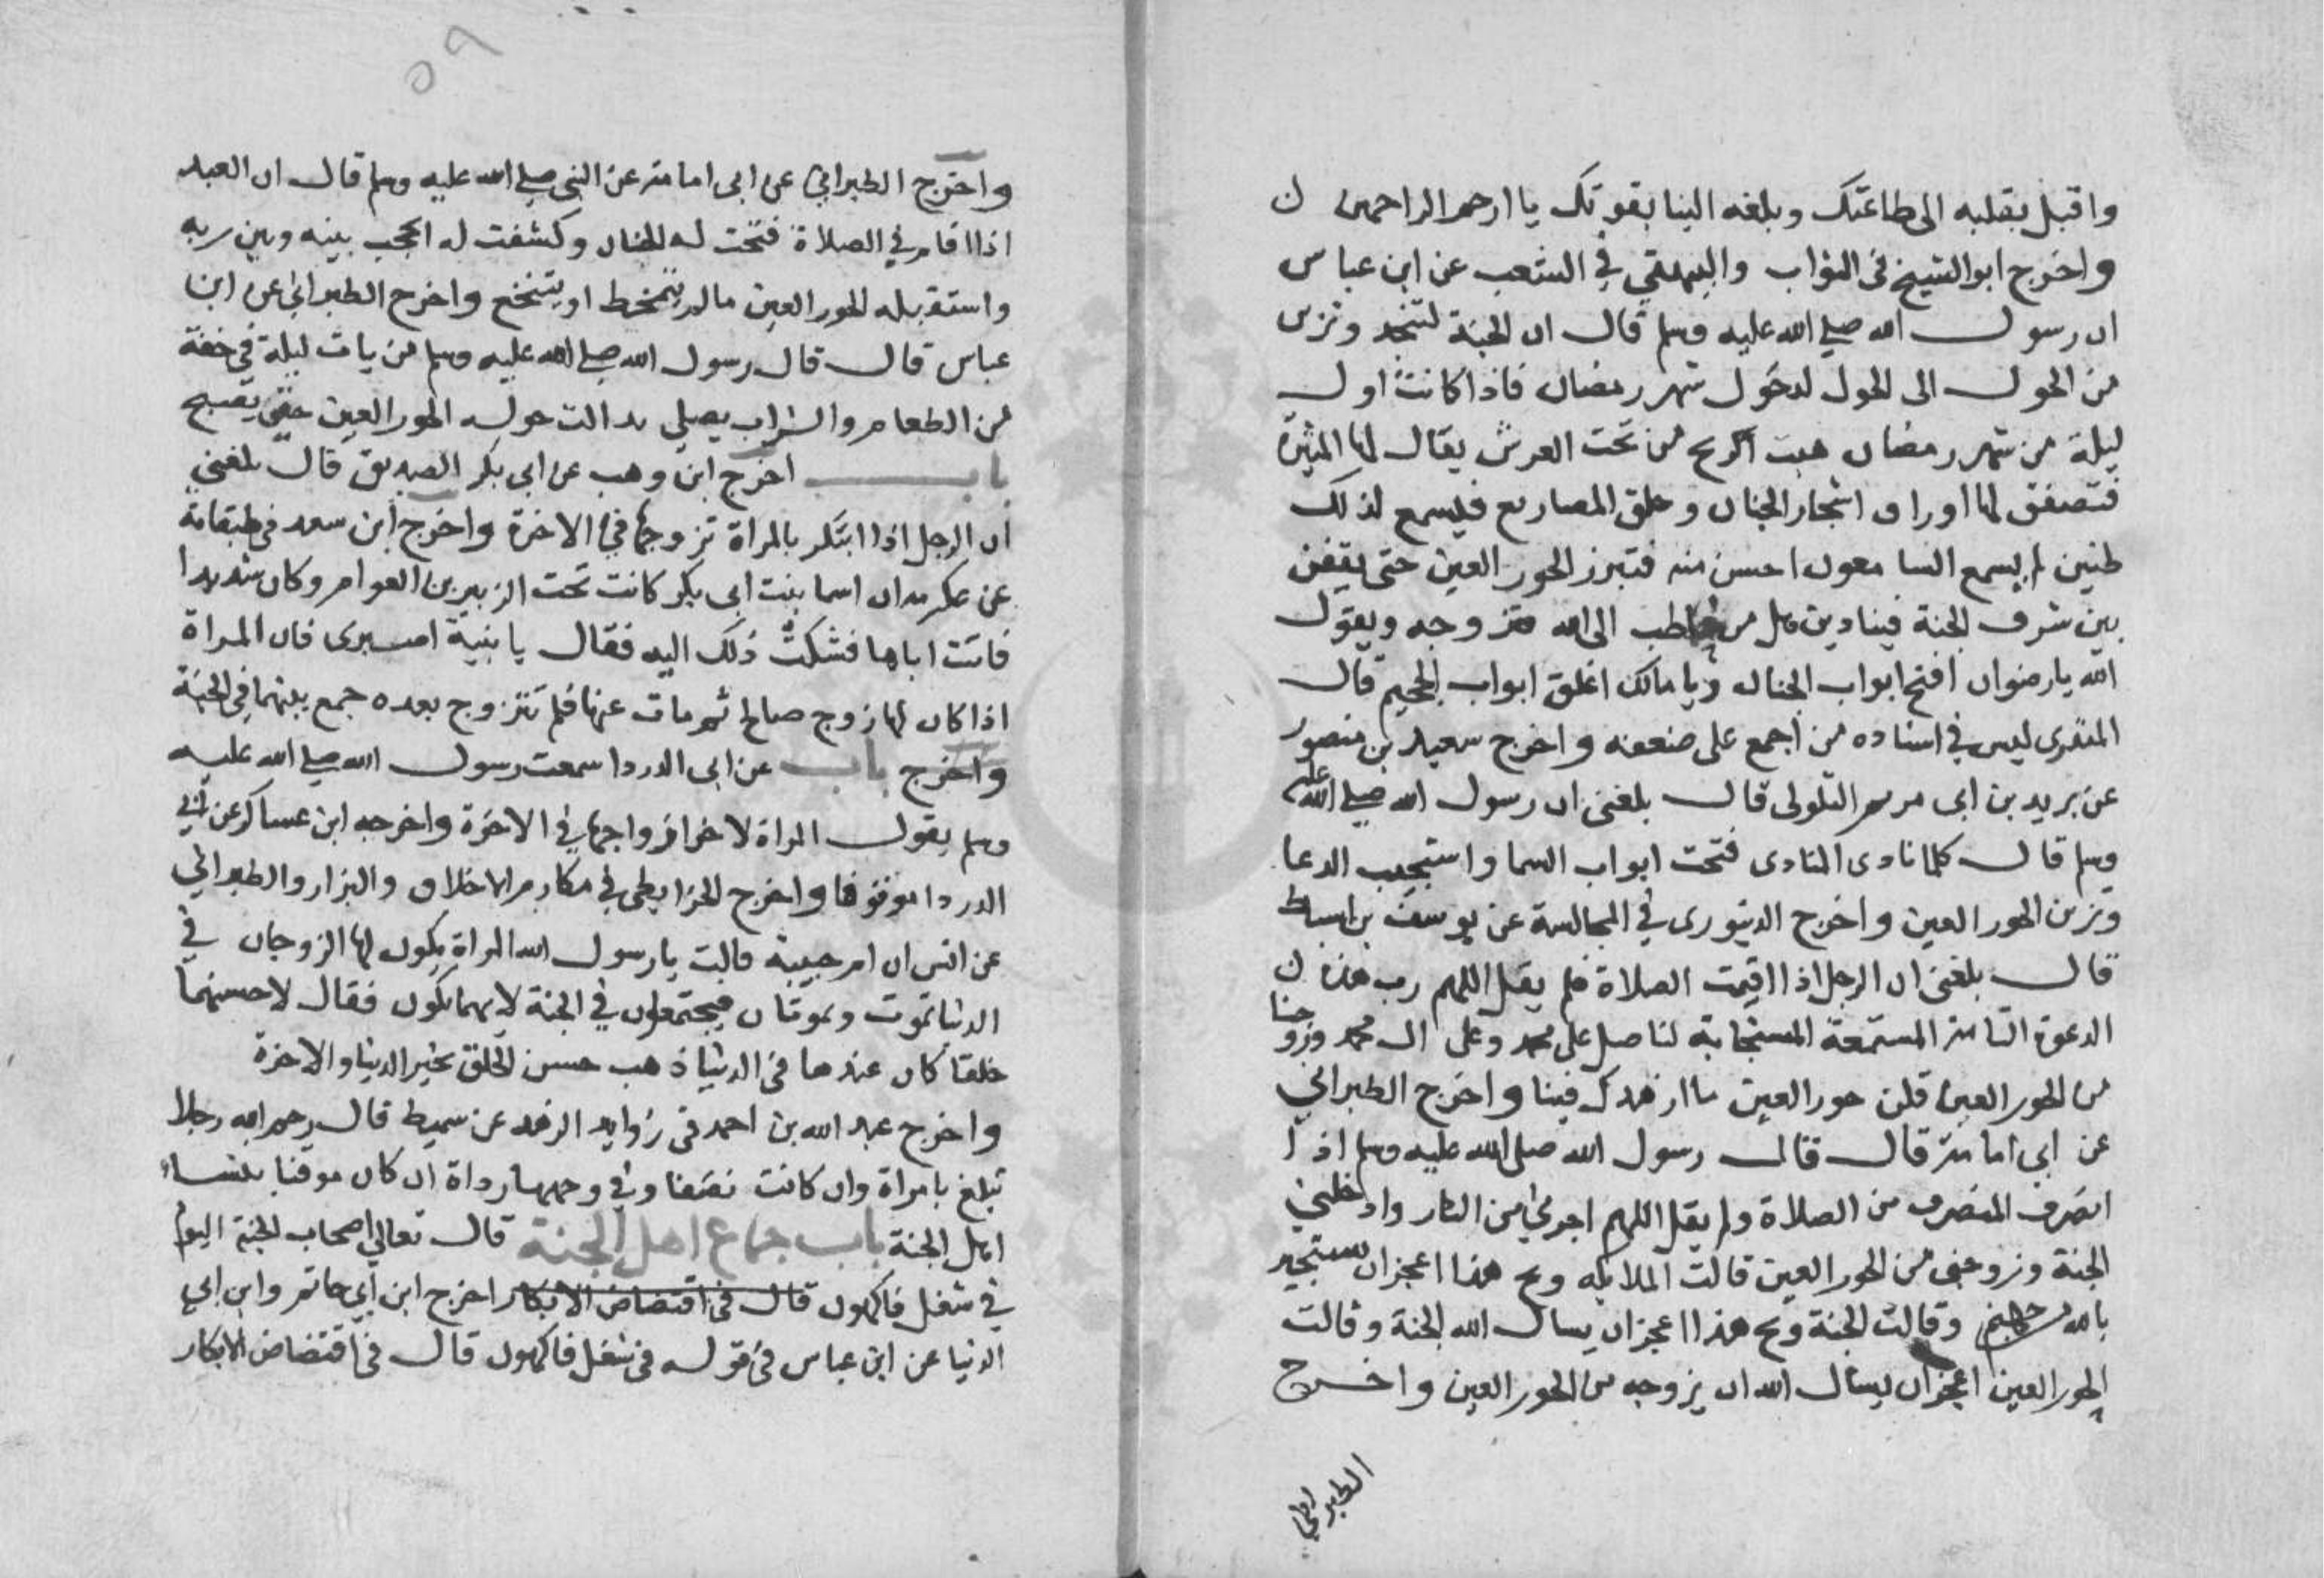 واقبل بقلبه الى طاعتك وبلغه الينا بقوتك يا ارحم الراحمين
واخرج ابو الشيخ في الثواب والبيهقي في الشعب عن ابن عباس
ان رسول الله صلى الله عليه وسلم قال ان الجنة لتنجد وتزين
من الحول الى الحول لدخول شهر رمضان فاذا كانت اول
ليلة من شهر رمضان هبت الريح من تحت العرش يقال لها المثيرة
فتصفق لها اوراق اشجار الجنان وحلق المصاريع فيسمع لذلك
طنين لم يسمع السامعون احسن منه فتبرز الحور العين حتى يقفن
بين شرف الجنة فينادين هل من خاطب الى الله فتزوجه ويقول
الله يا رضوان افتح ابواب الجنان ويا مالك اغلق ابواب الجحيم قال
المنذرى ليس في اسناده من اجمع على ضعفه واخرج سعيد بن منصور
عن بريد بن ابى مريم السلولى قال بلغنى ان رسول الله صلى الله عليه
وسلم قال كلما نادى المنادى فتحت ابواب السما واستجيب الدعا
وتزين الحور العين واخرج الدينورى في المجالسة عن يوسف بن اسباط
قال بلغنى ان الرجل اذا اقيمت الصلاة فلم يقل اللهم رب هذه
الدعوة التامة المستمعة المستجابة لنا صل على محمد وعلى ال محمد وزوجنا
من الحور العين قلن حور العين ما ازهدك فينا واخرج الطبراني
عن ابي امامة قال قال رسول الله صلى الله عليه وسلم اذا
انصرف المنصرف من الصلاة ولم يقل اللهم اجرني من النار وادخلني
الجنة وزوجنى من الحور العين قالت الملايكه ويح هذا اعجز ان يستجير
بالله من جهنم وقالت الجنة ويح هذا اعجز ان يسال الله الجنة وقالت
الحور العين اعجز ان يسال الله ان يزوجه من الحور العين واخرج
الطبراني
٥٩
واخرج الطبراني عن ابى امامة عن النبى صلى الله عليه وسلم قال ان العبد
اذا قام في الصلاة فتحت له الجنان وكشفت له الحجب بينه وبين ربه
واستقبله الحور العين مالم يتمخط او يتنخع واخرج الطبراني عن ابن
عباس قال قال رسول الله صلى الله عليه وسلم من بات ليلة في خفة
من الطعام والشراب يصلى تدالت حوله الحور العين حتى يصبح
باب اخرج ابن وهب عن ابى بكر الصديق قال بلغنى
ان الرجل اذا ابتكر بالمراة تزوجها في الاخرة واخرج ابن سعد في طبقاته
عن عكرمه ان اسما بنت ابى بكر كانت تحت الزبير بن العوام وكان شديدا
فاتت اباها فشكت ذلك اليه فقال يا بنية اصبرى فان المراة
اذا كان لها زوج صالح ثم مات عنها فلم تتزوج بعده جمع بينهما في الجنة
واخرج باب عن ابى الدردا سمعت رسول الله صلى الله عليه
وسلم يقول المراة لاخر ازواجها في الاخرة واخرجه ابن عساكر عن ابي
الدردا موقوفا واخرج الخرايطى في مكارم الاخلاق والبزار والطبراني
عن انس ان ام حبيبة قالت يا رسول الله المراة يكون لها الزوجان في
الدنيا تموت ويموتان فيجتمعون في الجنة لايهما تكون فقال لاحسنهما
خلقا كان عندها في الدنيا ذهب حسن الخلق بخير الدنيا والاخرة
واخرج عبد الله بن احمد في زوايد الزهد عن سميط قال رحم الله رجلا
تبلغ بامراة وان كانت نصفا وفي وجهها رداة ان كان موقنا بنساء
اهل الجنة باب جماع اهل الجنة قال تعالى اصحاب الجنة اليوم
في شغل فاكهون قال في اقتضاض الابكار اخرج ابن ابي حاتم وابن ابي
الدنيا عن ابن عباس في قوله في شغل فاكهون قال في اقتضاض الابكار